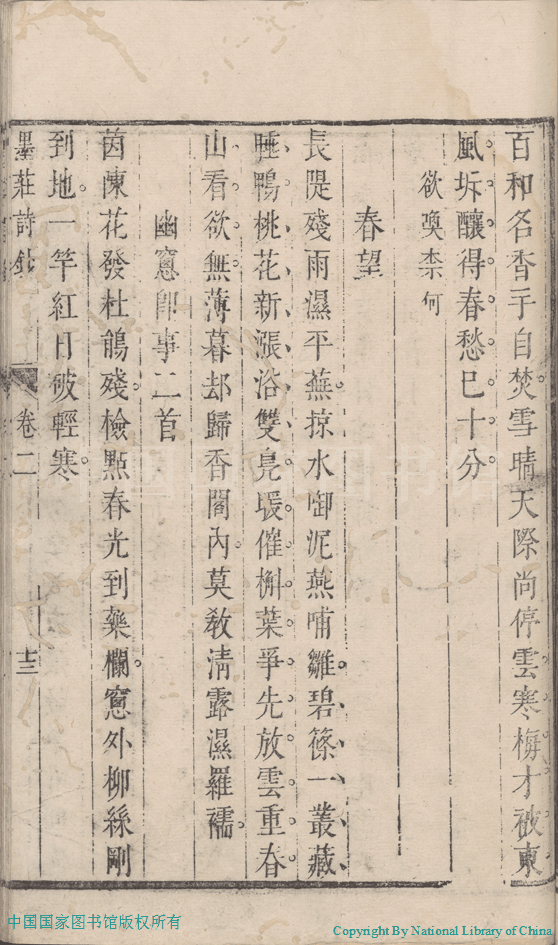 百和名香手自焚雪晴天際尚停雲寒梅才被東
風坼釀得春愁巳十分
欲喚柰何
春望
長隄殘雨濕平蕪掠水啣泥燕哺雛碧篠一叢藏
睡鴨桃花新漲浴雙鳧煖催槲葉爭先放雲重春
山看欲無薄暮却歸香閣內莫敎淸露濕羅襦
幽窻卽事二首
茵蔯花發杜鵑殘檢點春光到藥欄窻外柳絲剛
到地一竿紅日破輕寒
墨莊詩鈔
卷二
十三
中国国家图书馆版权所有
Copyright By National Library of China